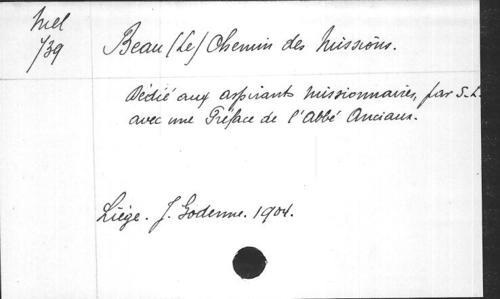 Mel
/39
Beau (Le) Chemin des Missions.
Dédié aux aspirants missionnaires, par S-L.
avec une Préface de l'Abbé Anciaux.
Liège. J. Godenne. 1904.